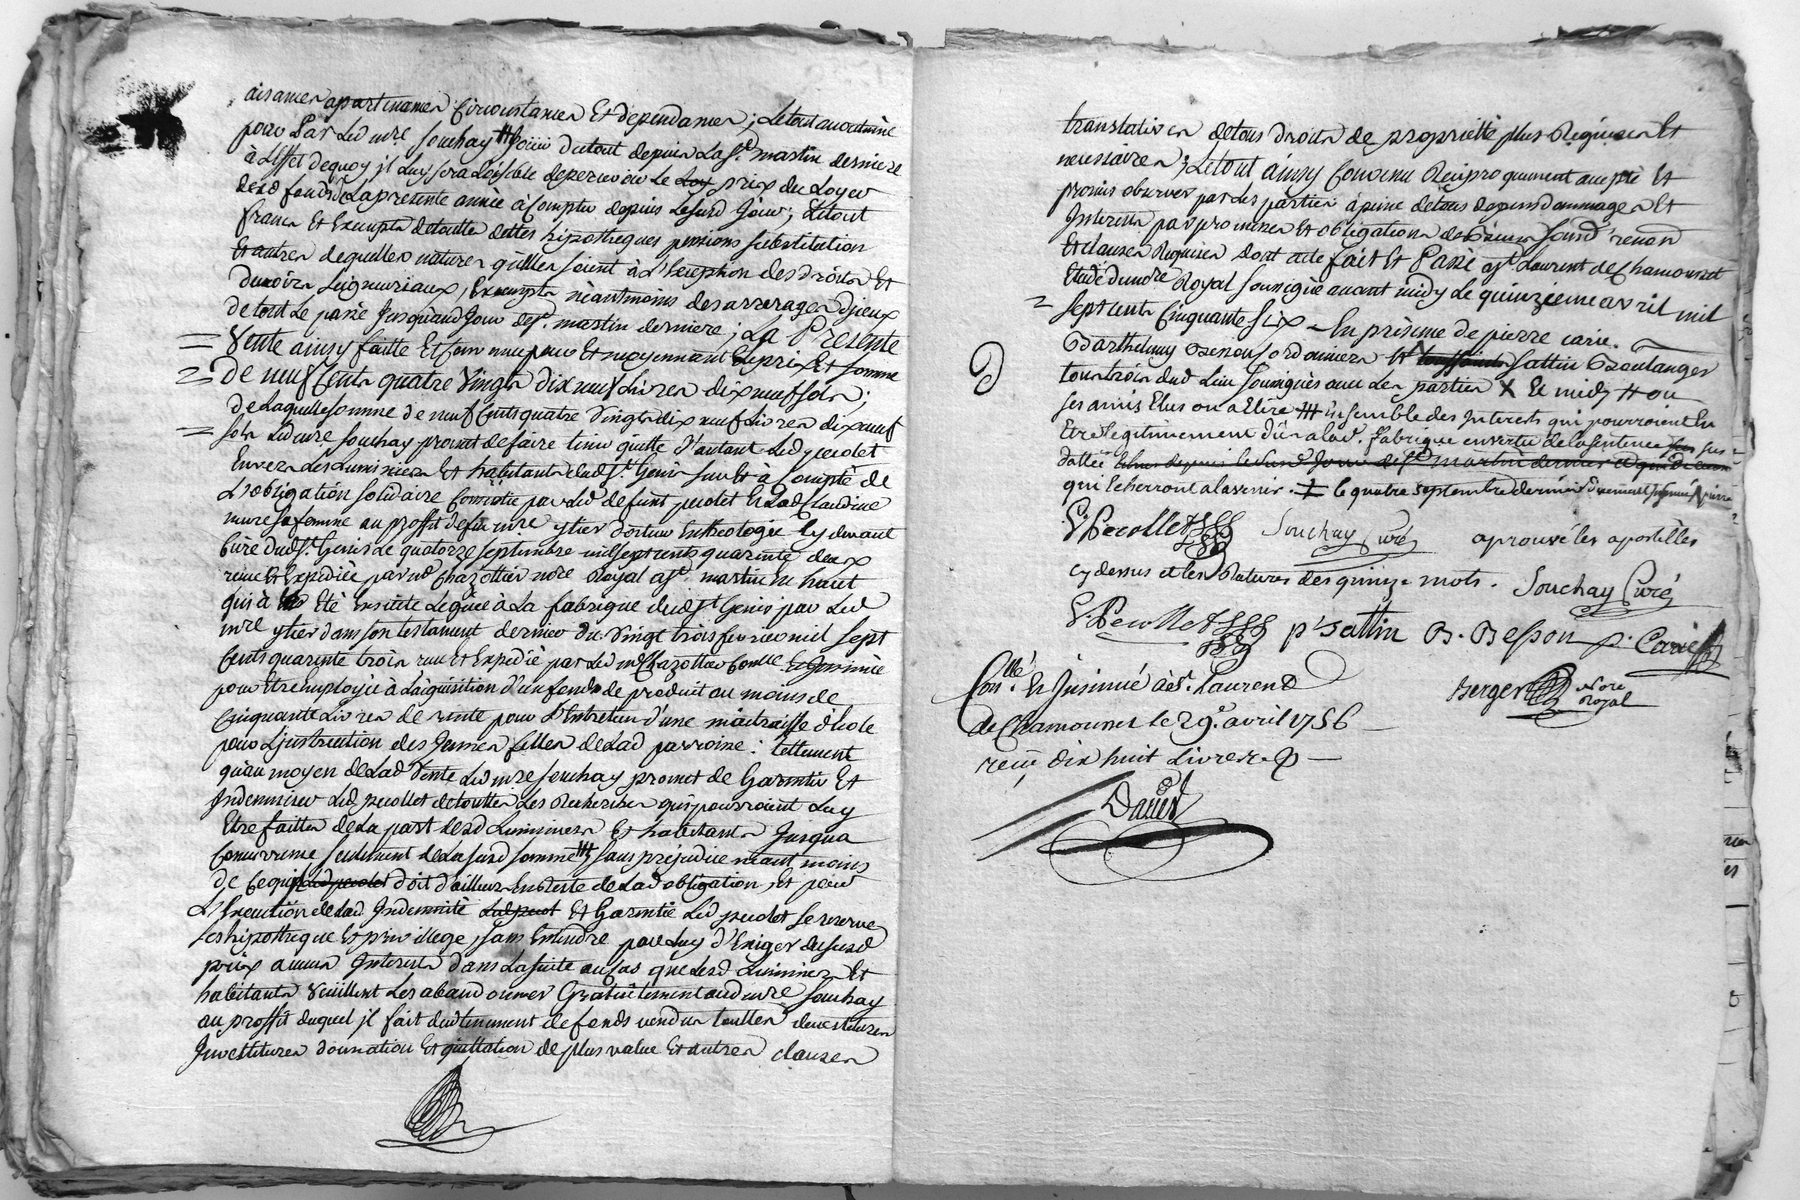 aisances apartenances circonstances Et dependances; Le tout au meme
pour Par Led mre Souchay # jouir du tout depuis La St martin derniere
à L'effet de quoy il Luy sera Loisible de percevoir Le prix du Loyer
desd fonds La presente année à Compter depuis Lesusd jour; Le tout
francs Et Exempts de toutte dettes hipotheques pensions substitution
Et autres de quelles natures qu'elles soient à L'Exception des droits Et
devoirs seigneuriaux, Exempts néantmoins des arrerages d'jceux
de tout Le passé Jusqu'aud Jour de St martin derniere; La Presente
Vente ainsy faitte Et moyennant Le prix Et somme
De neuf Cents quatre Vingts dix neuf Livres dix neuf sols;
de Laquelle somme de neuf Cents quatre Vingts dix neuf Livres dix neuf
sols Led mre Souchay promet de faire tenir quitte d'autant Led pecolet
Envers Les Luminiers Et habitants dud St Genis sur Et à Compte de
L'obligation solidaire Consentie par Led defunt pecolet Et Lad Claudine
mure sa femme au proffit de feu mre ytier docteur En theologie Cy devant
Curé dud St Genis Le quatorze septembre mil sept cents quarente deux
reçue Et Expediée par me Chazottier nore Royal a St martin En haut
qui à Eté Ensuite Leguée à La fabrique dud St Genis par Led
mre ytier dans son testament dernier du Vingt trois fevrier mil sept
Cents quarente trois reçu Et Expedié par Led me Chazottier Conllé Et Jnsinué
pour Etre Employée à L'aquisition d'un fonds de produit au moins de
Cinquante Livres de rente pour L'Entretien d'une maitraisse d'Ecole
pour L'jnstruction des Jeunes filles de Lad parroisse: tellement
qu'au moyen de Lad Vente Led mre Souchay promet de Garantir Et
Jndemniser Led pecollet de touttes Les Recherches qui pourroient Luy
Etre faittes de La part desd Luminiers Et habitants Jusqua
Concurrence seulement de Lasusd somme ### sans préjudice néantmoins
de Ce qui Led pecolet doit d'ailleurs En Reste de Lad obligation, Et pour
L'Execution de Lad Jndemnité Et Garantie Led pecolet se reserve
ses hipotheque Et privillege, sans Entendre par Luy d'Exiger dususd
prix aucuns Jnterests dans La suite au Cas que Lesd Luminiers Et
habitants Veuillent Les abandonner Gratuitement aud mre Souchay
au proffit duquel jl fait dud tenement de fonds vendu touttes devestitures
Jnvestitures donnation Et quittation de plus value Et autres clauses
translatives de tous droits de propriétté plus Requises Et
necessaires; Le tout ainsy Convenu Reciproquement accepté Et
promis observer par Les parties à peine de tous depens dommages Et
Jnterests par promesses Et obligations de Biens renon
Et clauses Requises dont acte fait Et Passé a St Laurent de Chamousset
Etude du nore Royal soussigné avant midy Le quinzieme avril mil
sept cents Cinquante six En présence de pierre carie.
Barthelemy Besson Cordonniers Et Sattin Boulanger
tous trois dud Lieu soussignés avec Les parties X Et midy # ou
ses amis Elus ou a Elire ### Ensemble des Jnterets qui pourroient En
Etre Legitimement dûs a lad. fabrique en vertu de la sentence
dattée
qui Echerront a l'avenir. le quatre septembre dernier
E. Pecollet Souchay Curé aprouvé les apostilles
cy dessus et les Ratures des quinze mots. Souchay Curé
E. Pecollet p. Sattin B. Besson p. Carie
Conllé Et Jnsinué à St. Laurent
de Chamousset le 29e. avril 1756
reçu dix huit Livres.
Berger Nore Royal
David